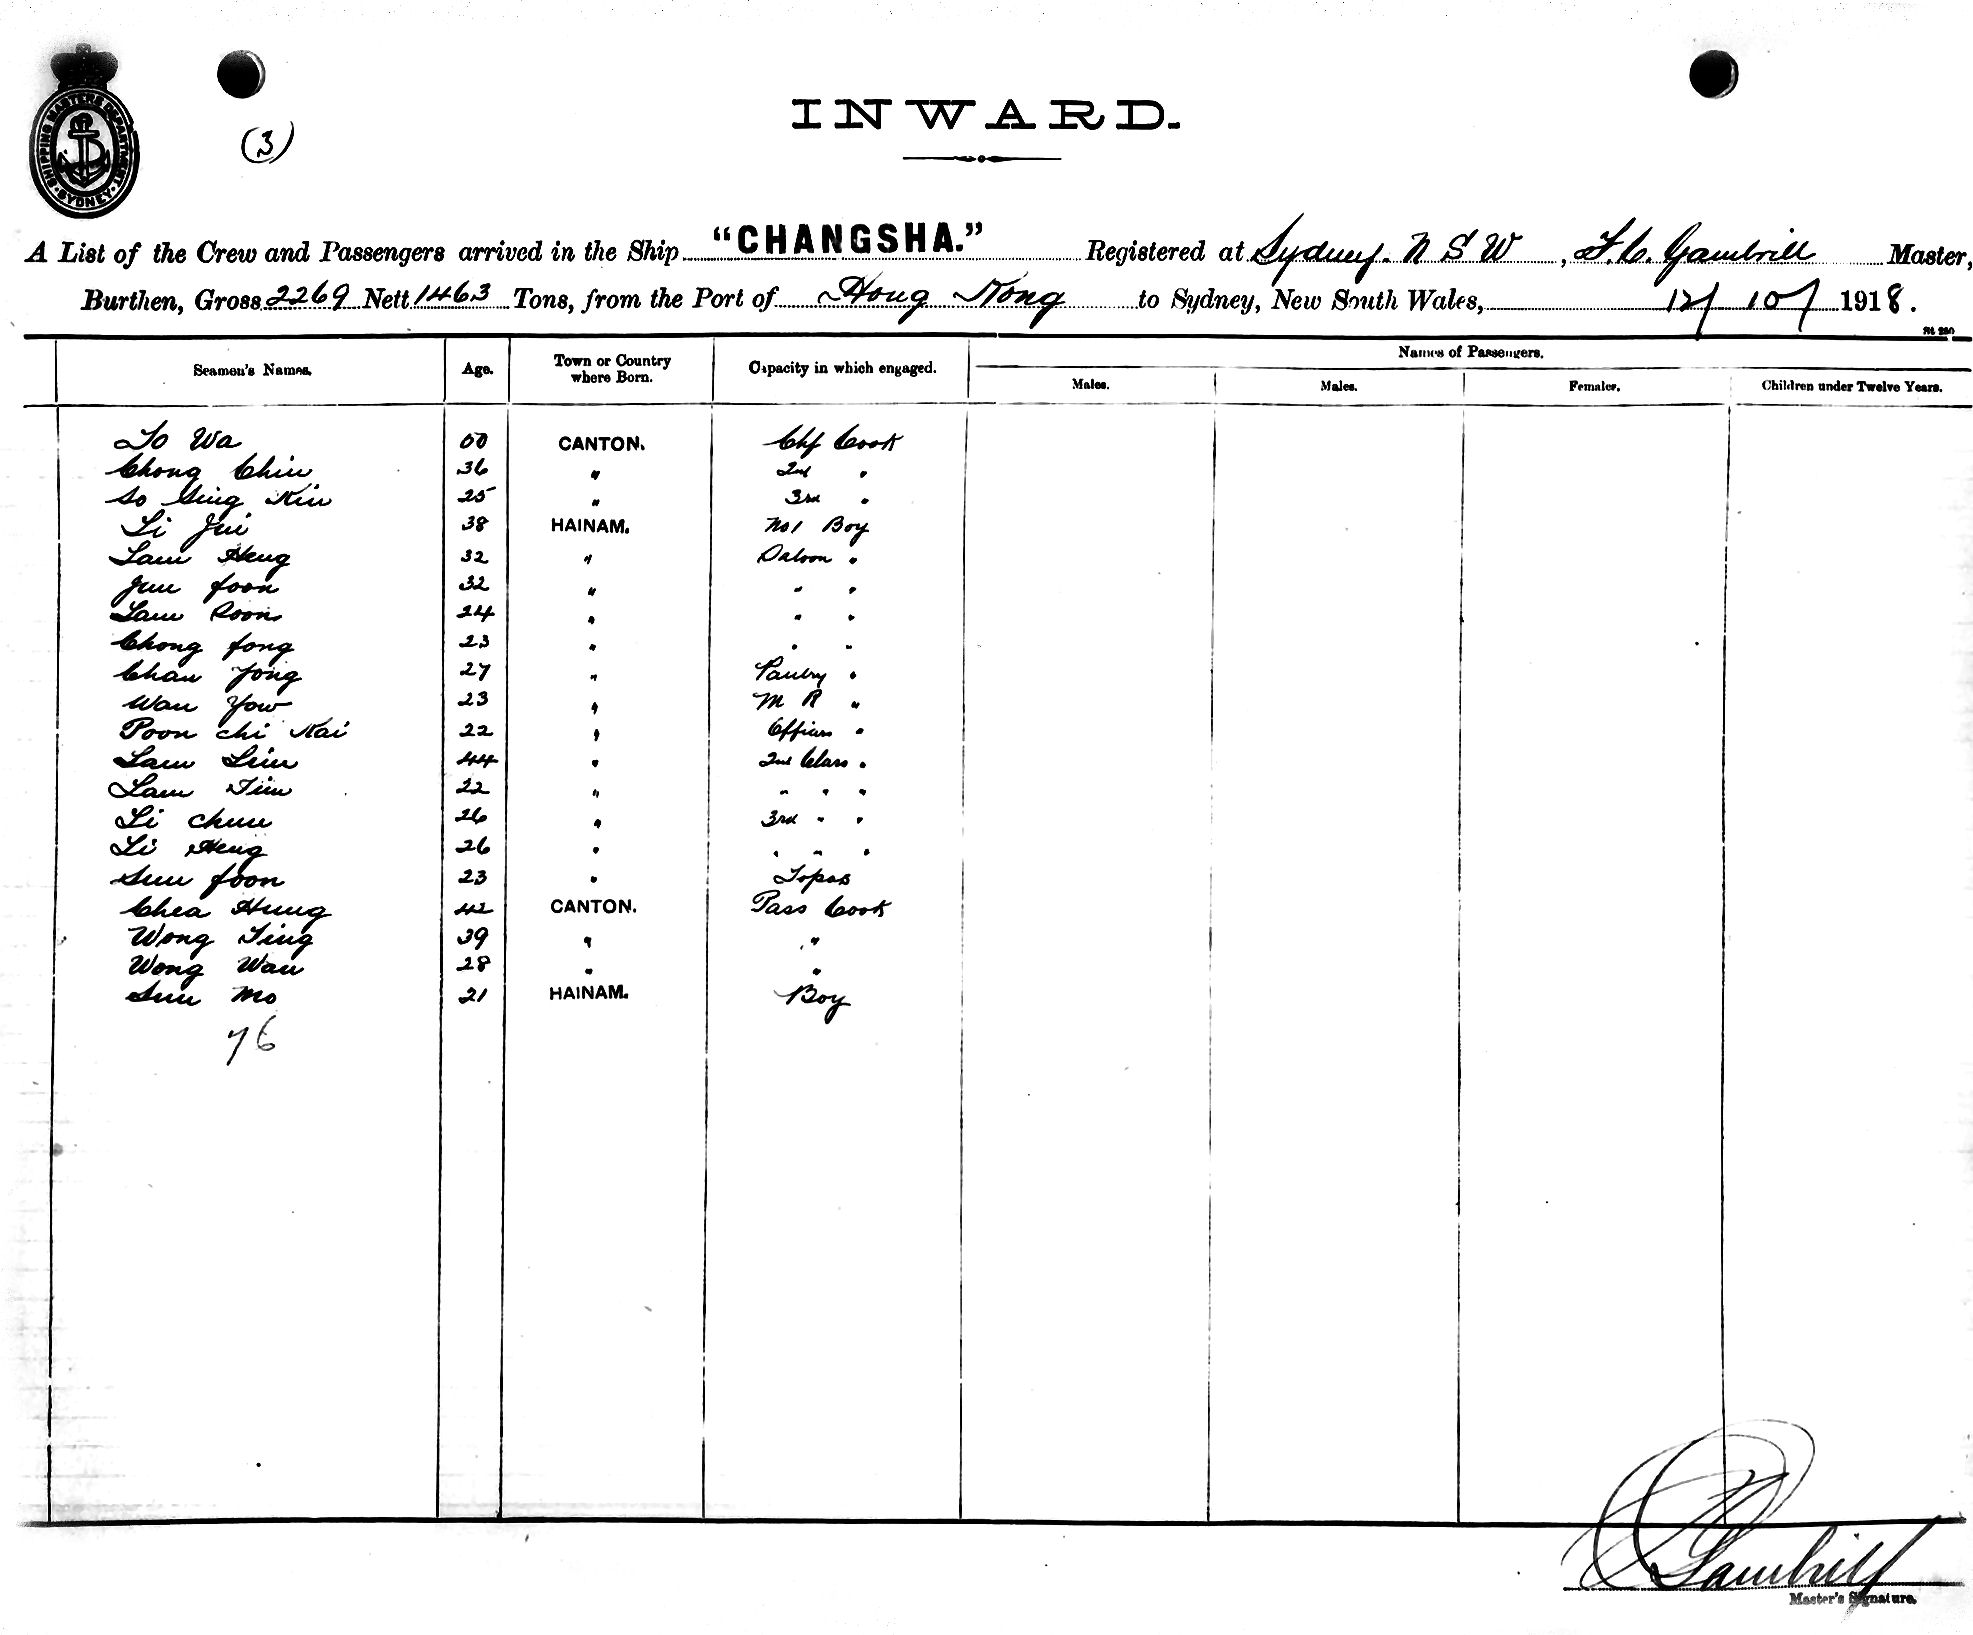 SHIPPING MASTERS DEPARTMENT · SYDNEY ·
(3)
INWARD.
A List of the Crew and Passengers arrived in the Ship "CHANGSHA." Registered at Sydney. N S W, F. C. Gambrill Master,
Burthen, Gross 2269 Nett 1463 Tons, from the Port of Hong Kong to Sydney, New South Wales, 12/10/1918.
Names of Passengers.
Seamen's Names. Age. Town or Country where Born. Capacity in which engaged. Males. Males. Females. Children under Twelve Years.
Lo Wa 50 CANTON. Chf Cook
Chong Chin 36 " 2nd "
So Sing Kin 25 " 3rd "
Li Jui 38 HAINAM. No1 Boy
Lam Heng 32 " Saloon "
Jun foon 32 " " "
Lam Poon 24 " " "
Chong fong 23 " " "
Chan Yong 27 " Pantry "
Wan Yow 23 " M R "
Poon chi Kai 22 " Officers "
Lam Lim 44 " 2nd Class "
Lam Tim 22 " " " "
Li chun 26 " 3rd " "
Li Heng 26 " " " "
Sun foon 23 " Topas
Chea Hung 42 CANTON. Pass Cook
Wong Ting 39 " "
Wong Wan 28 " "
Sun Mo 21 HAINAM. Boy
76
Gambrill
Master's Signature.